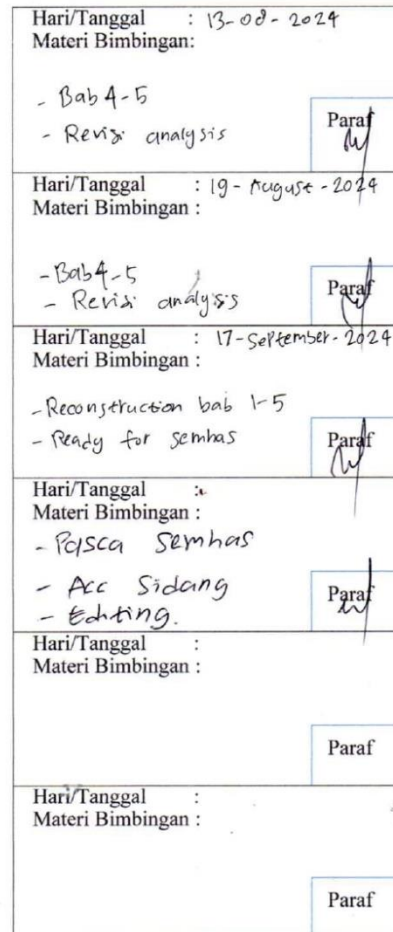 Hari/Tanggal : 13-08-2024
Materi Bimbingan:
- Bab 4-5
- Revisi analysis
Paraf
Hari/Tanggal : 19-August-2024
Materi Bimbingan :
- Bab 4-5
- Revisi analysis
Paraf
Hari/Tanggal : 17-September-2024
Materi Bimbingan :
- Reconstruction bab 1-5
- Ready for semhas
Paraf
Hari/Tanggal :
Materi Bimbingan :
- Pasca Semhas
- Acc Sidang
- Editing.
Paraf
Hari/Tanggal :
Materi Bimbingan :
Paraf
Hari/Tanggal :
Materi Bimbingan :
Paraf